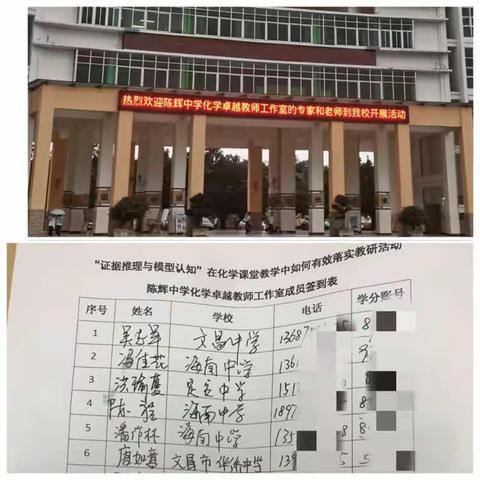 热烈欢迎陈辉中学化学卓越教师工作室的专家和老师到我校开展活动
“证据推理与模型认知”在化学课堂教学中如何有效落实教研活动
陈辉中学化学卓越教师工作室成员签到表
序号 姓名 学校 电话 学分账号
1 文昌中学 13687 5 8
2 冯佳芸 海南中学 136
3 洪瑜蔓 定安中学 151 8
4 海南中学 1897 8
5 潘作林 海南中学 135 8 8
6 唐如蔓 文昌市华侨中学 139 5 5